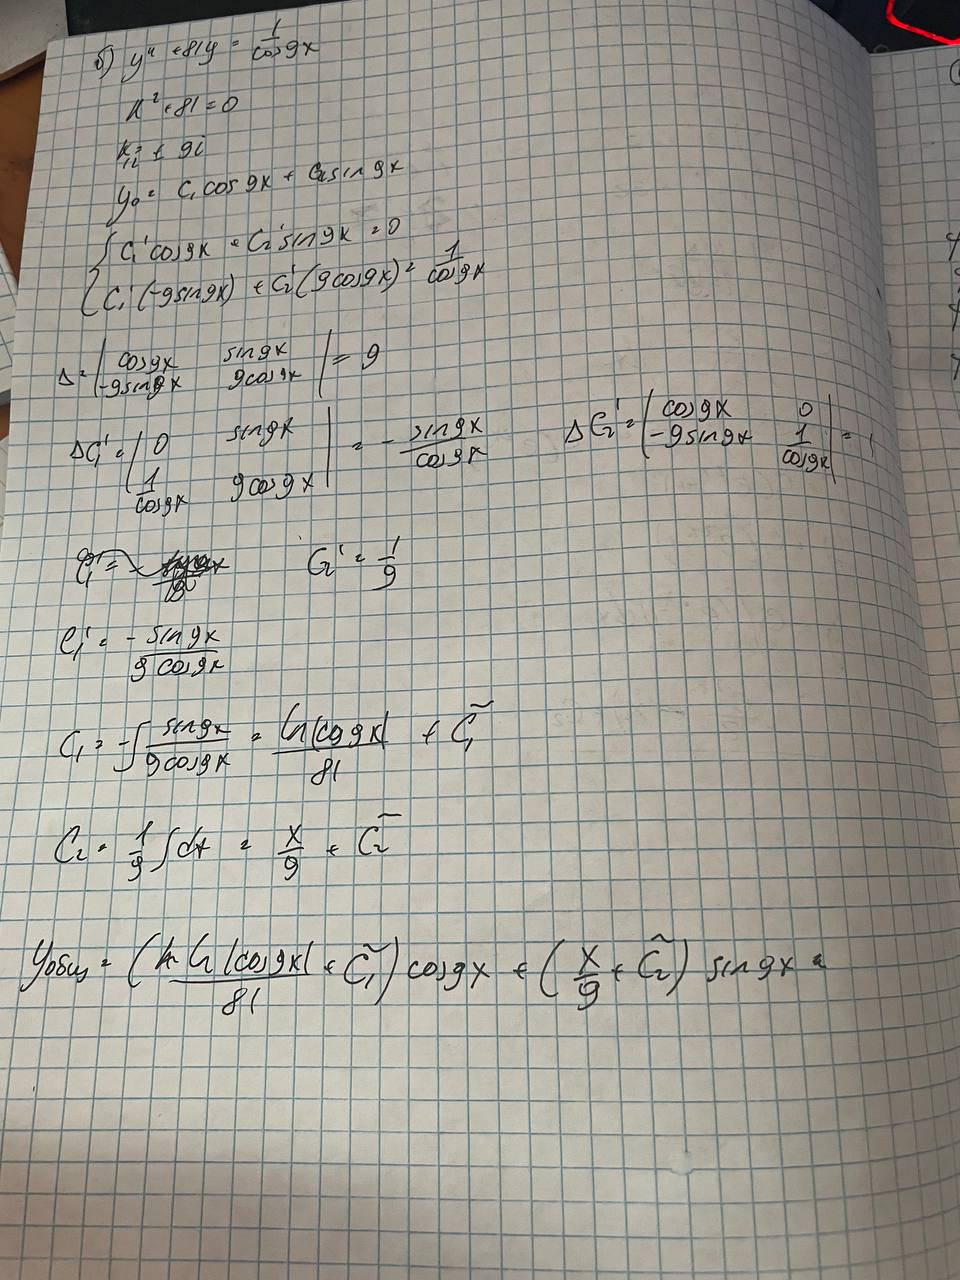 б) y'' + 81y = 1/cos9x
k² + 81 = 0
k₁,₂ = ± 9i
y₀ = C₁cos9x + C₂sin9x
{ C₁'cos9x + C₂'sin9x = 0
{ C₁'(-9sin9x) + C₂'(9cos9x) = 1/cos9x
Δ = | cos9x sin9x ; -9sin9x 9cos9x | = 9
ΔC₁' = | 0 sin9x ; 1/cos9x 9cos9x | = - sin9x/cos9x ΔC₂' = | cos9x 0 ; -9sin9x 1/cos9x | = 1
C₁' = - C₂' = 1/9
C₁' = - sin9x/9cos9x
C₁ = -∫ sin9x/9cos9x = ln|cos9x|/81 + C̃₁
C₂ = 1/9 ∫dx = x/9 + C̃₂
Yобщ = (ln|cos9x|/81 + C̃₁) cos9x + (x/9 + C̃₂) sin9x =